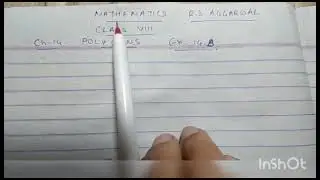 MATHEMATICS R.S AGGARWAL
CLASS VIII
Ch-14 POLYGONS EX 14 B
InShOt